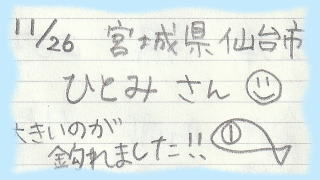 11/26 宮城県仙台市
ひとみさん
大きいのが
釣れました!!